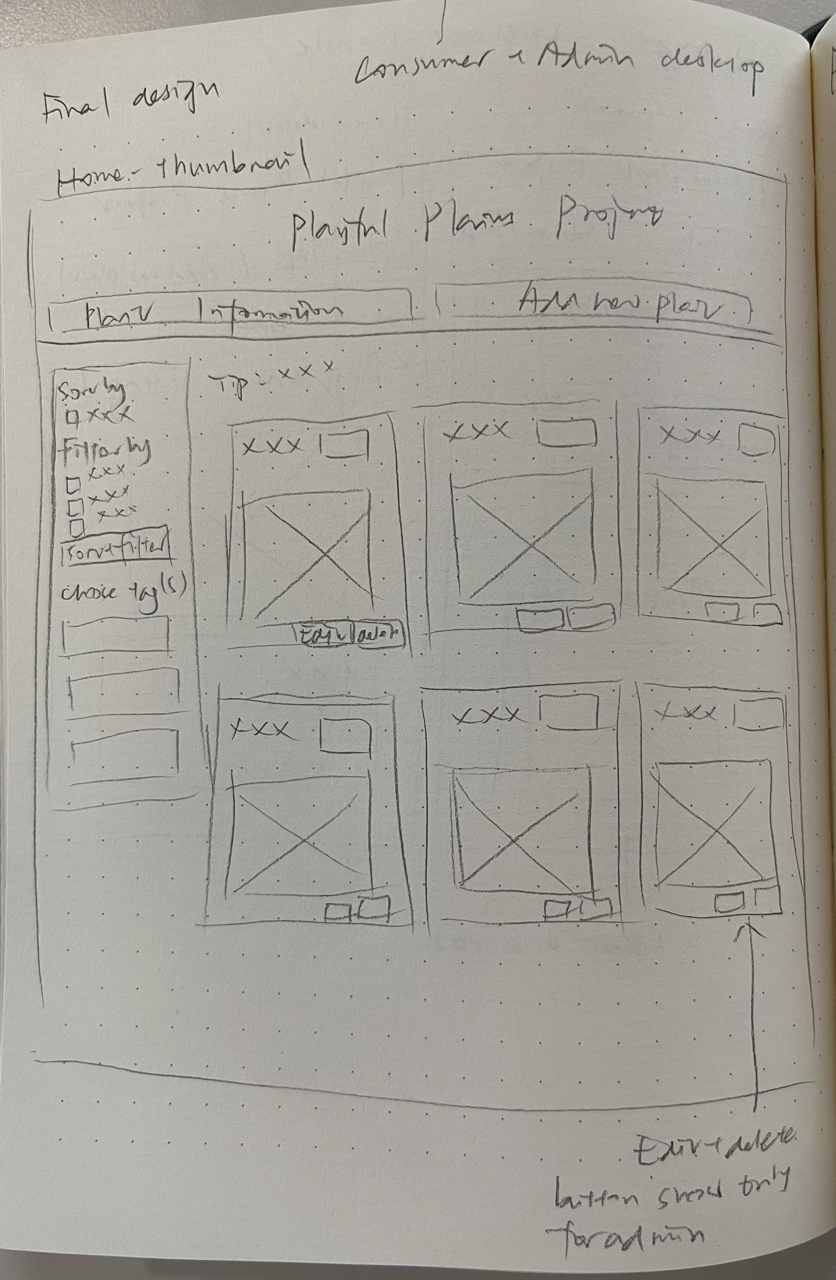 Consumer + Admin desktop
Final design
Home - thumbnail
Playful Plains Project
Plant Information
Add new plant
Sort by
xxx
Filter by
xxx
xxx
xxx
Sort+filter
choose tag(s)
Tip: xxx
xxx
xxx
xxx
Edit
delete
xxx
xxx
xxx
Edit + delete
button show only
for admin